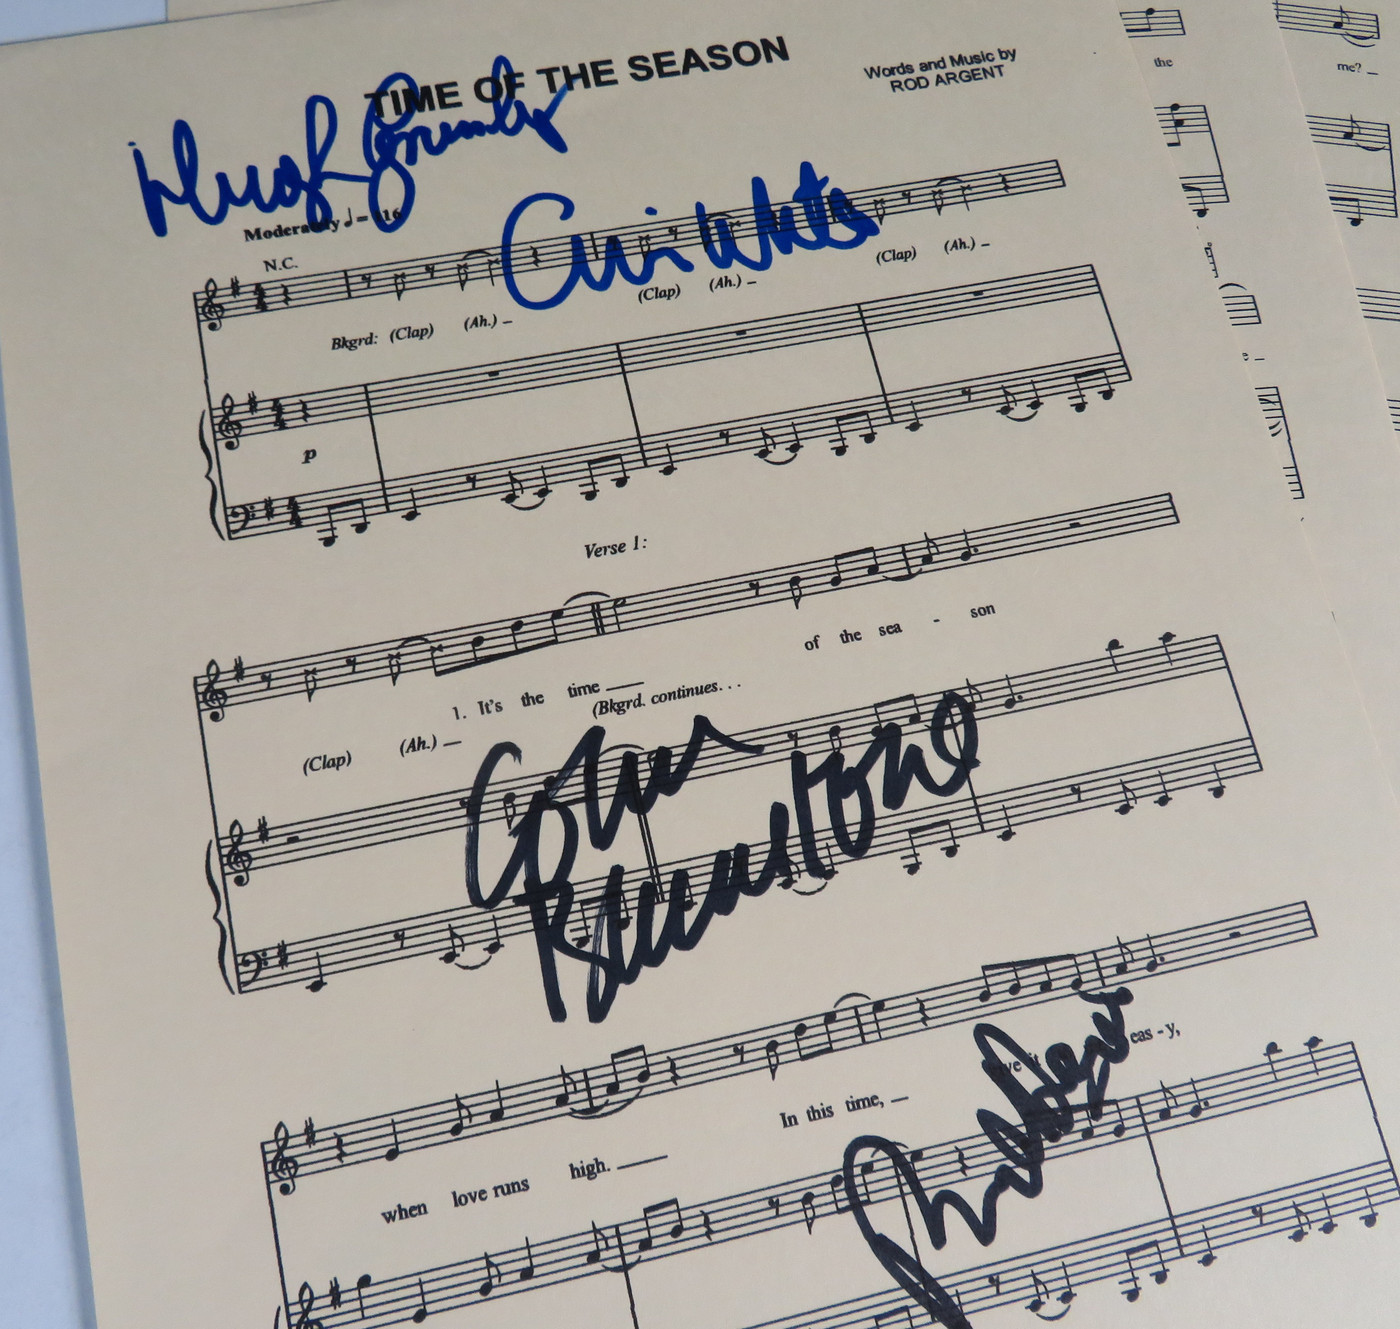 TIME OF THE SEASON
Words and Music by
ROD ARGENT
the
me?
Hugh Grundy
Chris White
Moderately ♩ = 116
N.C.
Bkgrd: (Clap) (Ah.) (Clap) (Ah.) (Clap) (Ah.)
p
Verse 1:
1. It's the time of the sea - son
(Clap) (Ah.) (Bkgrd. continues...
Colin
Blunstone
when love runs high. In this time, give it eas - y,
Rod Argent